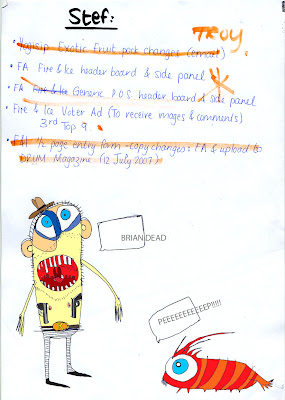 Stef:
TROY
• Highsip Exotic Fruit pack changes (email)
• FA Fire & Ice header board & side panel
• FA Fire & Ice Generic P.O.S. header board & side panel
• Fire & Ice Voter Ad (To receive images & comments)
3rd Top 9.
• F&I ½ page entry form - copy changes = FA & upload to
DRUM Magazine (12 July 2007)
BRIAN DEAD
PEEEEEEEEEEEP!!!!!